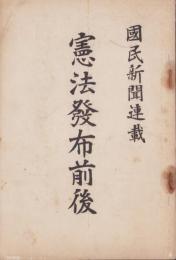 國民新聞連載
憲法發布前後